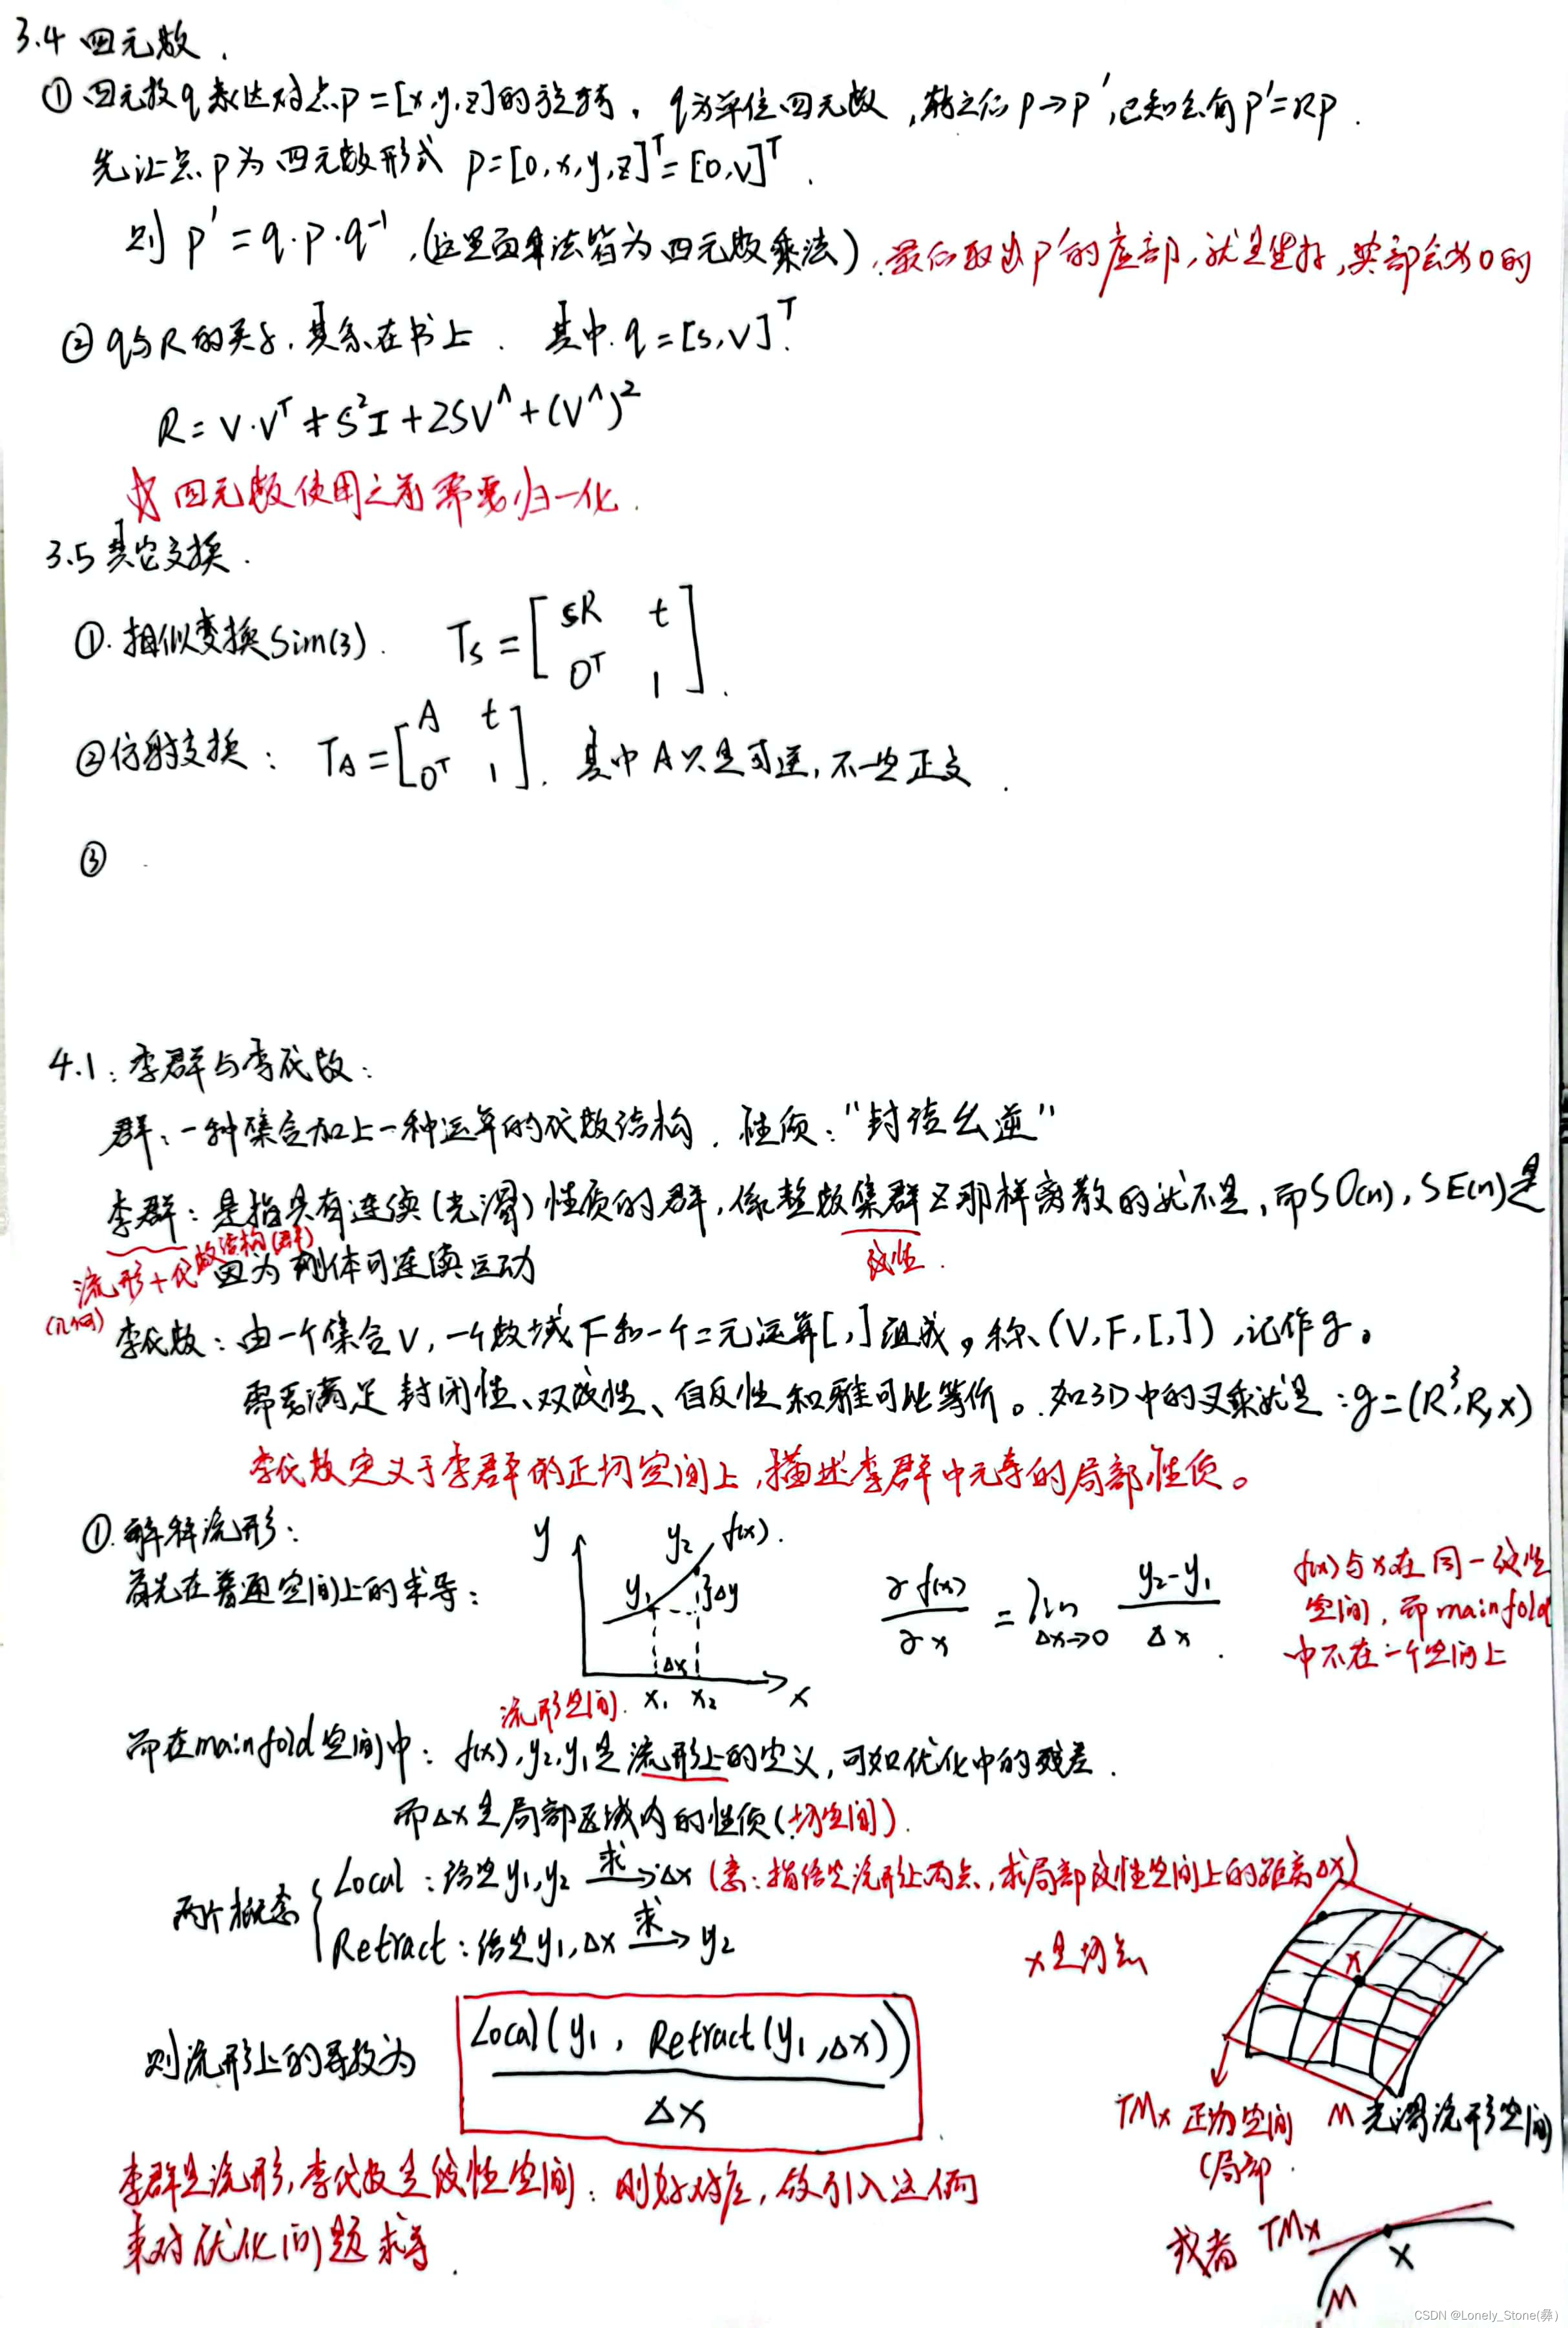 3.4 四元数.
① 四元数q表达对点P=[x,y,z]的旋转。q为单位四元数,转之后P→P′,已知会有P′=RP.
先让点P为四元数形式 P=[0,x,y,z]ᵀ=[0,V]ᵀ.
则 P′=q·P·q⁻¹,(这里面乘法皆为四元数乘法).最后取出P′的虚部,就是坐标,实部会为0的
② q与R的关系,其系在书上. 其中.q=[S,V]ᵀ.
R=V·Vᵀ+S²I+2SV^+(V^)²
四元数使用之前需要归一化.
3.5 其它变换.
①.相似变换Sim(3). Ts=[sR t
0ᵀ 1].
②仿射变换: TA=[A t
0ᵀ 1]. 其中A只是可逆,不一定正交.
③
4.1:李群与李代数:
群:一种集合加上一种运算的代数结构. 性质:"封结幺逆"
李群:是指具有连续(光滑)性质的群,像整数集群Z那样离散的就不是,而SO(n),SE(n)是
流形+代数结构(群)
(几何)
因为刚体可连续运动
线性.
李代数:由一个集合V,一个数域F和一个二元运算[,]组成。称(V,F,[,]),记作g。
需要满足封闭性、双线性、自反性和雅可比等价。如3D中的叉乘就是:g=(R³,R,×)
李代数定义于李群的正切空间上,描述李群中元素的局部性质。
①.解释流形:
首先在普通空间上的求导:
y
y₂
f(x).
y₁
Δy
Δx
x₁ x₂
x
∂f(x)/∂x = lim Δx→0 (y₂-y₁)/Δx.
f(x)与x在同一线性
空间,而mainfold
中不在一个空间上
流形空间.
而在mainfold空间中: f(x),y₂,y₁是流形上的定义,可如优化中的残差.
而Δx是局部区域内的性质(切空间).
两个概念
Local:给定y₁,y₂ 求→Δx (意:指给定流形上两点,求局部线性空间上的距离Δx)
Retract:给定y₁,Δx 求→ y₂
x是切点
x
则流形上的导数为 Local(y₁, Retract(y₁,Δx))
Δx
TMx 正切空间
(局部.
M 光滑流形空间
李群是流形,李代数是线性空间:刚好对应,故引入这俩
来对优化问题求导.
或者 TMx
x
M
CSDN @Lonely_Stone(彝)